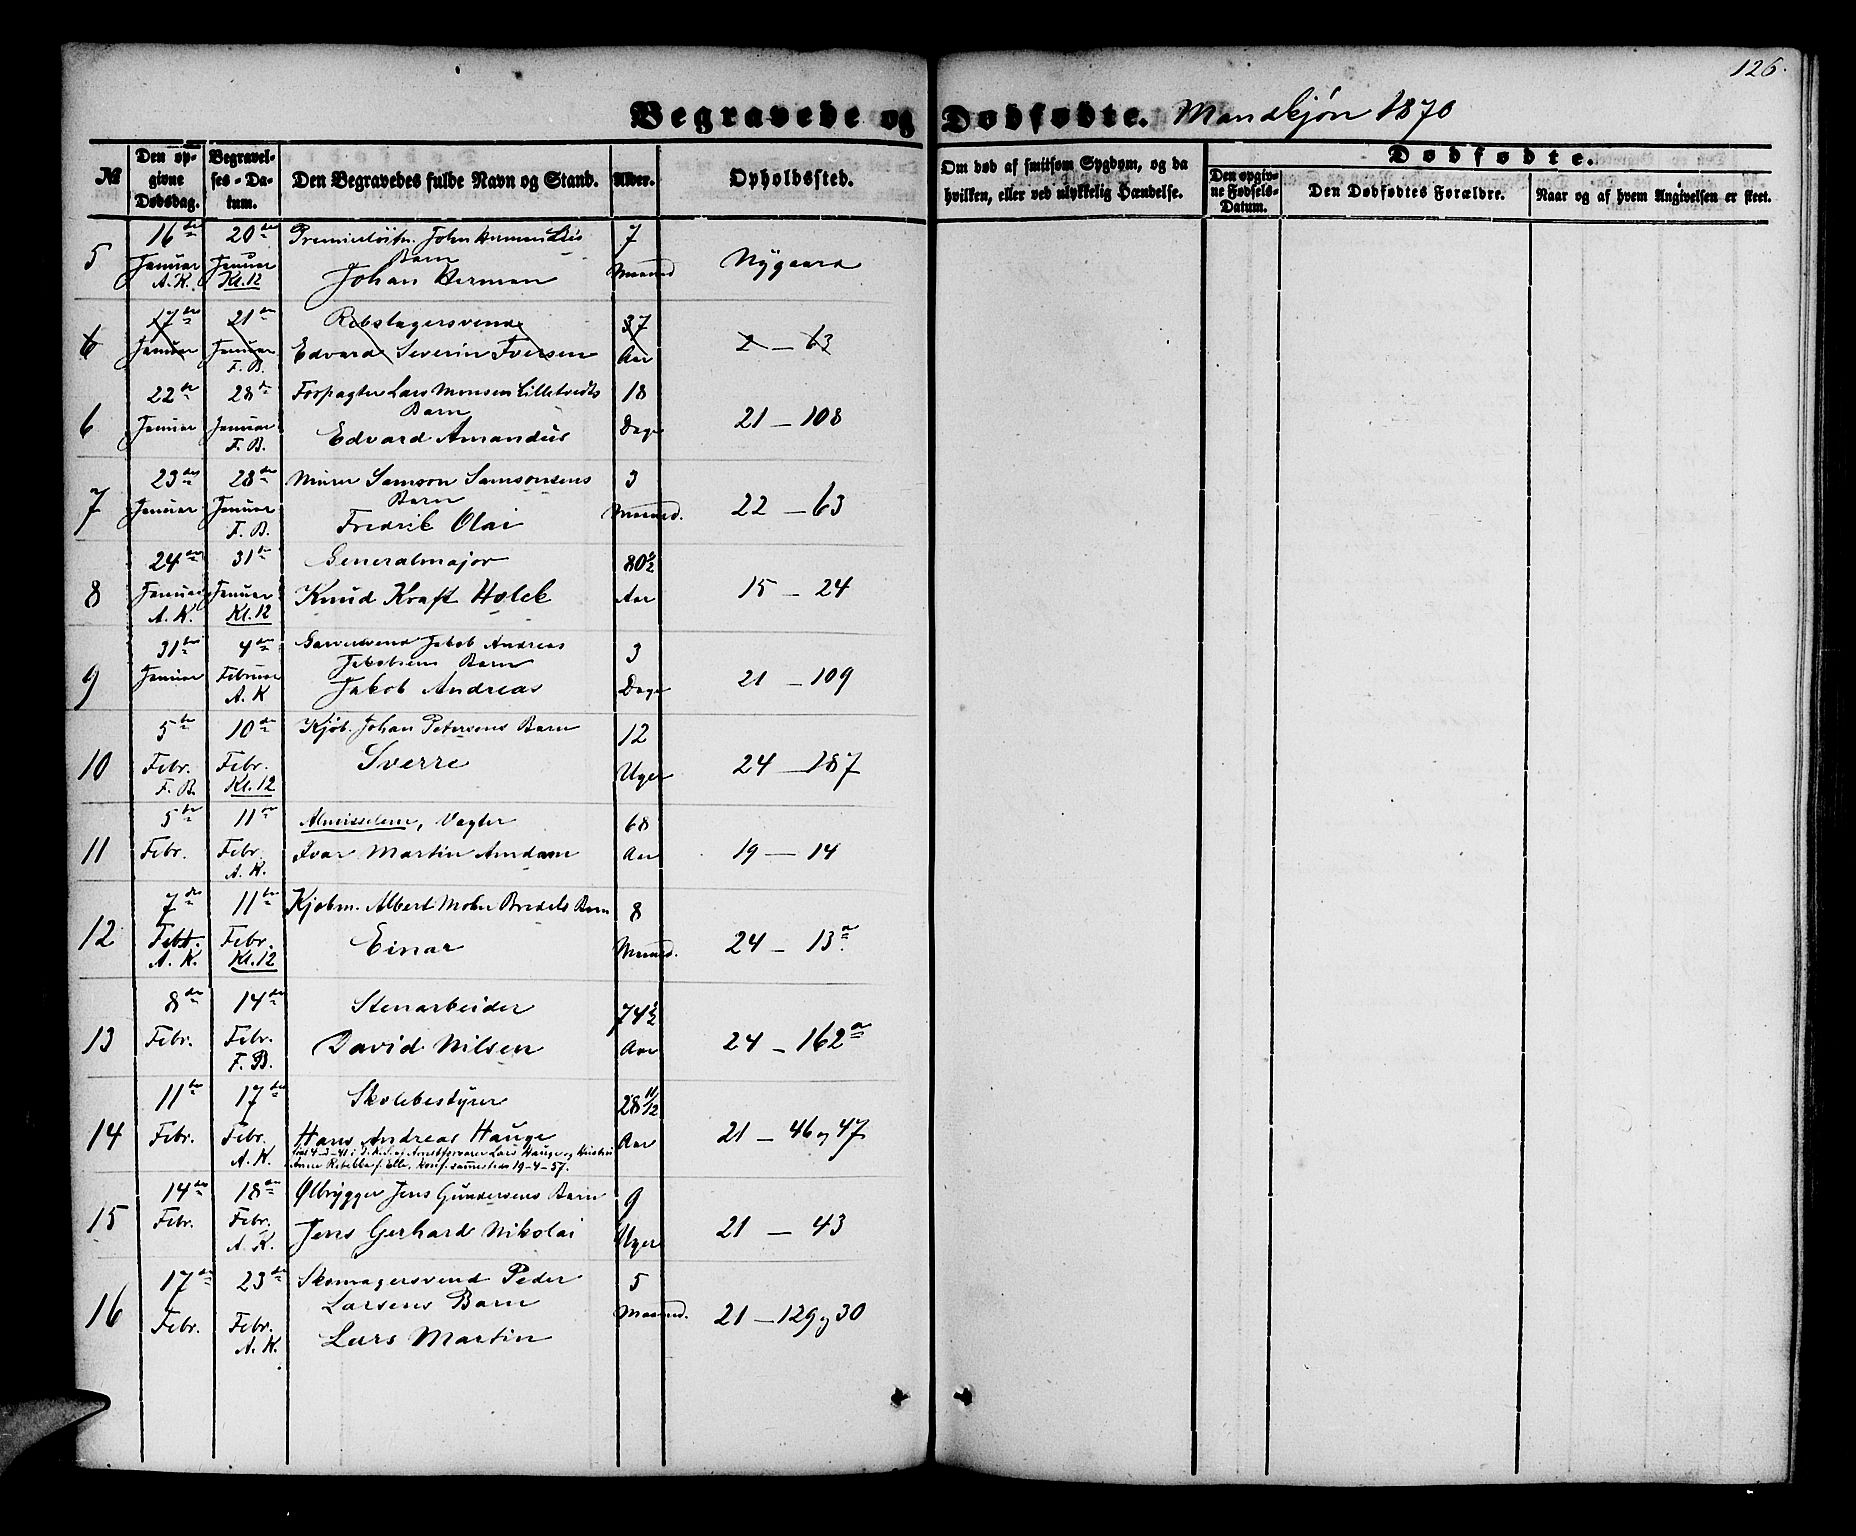 126.
Begravede og Dødfødte. Mandkjøn 1870
№
Den opgivne Dødsdag.
Begravelses-Datum.
Den Begravedes fulde Navn og Stand.
Alder.
Opholdssted.
Om død af smitsom Sygdom, og da hvilken, eller ved ulykkelig Hændelse.
Dødfødte.
Den opgivne Fødsels-Datum.
Den Dødfødtes Forældre.
Naar og af hvem Angivelsen er skeet.
5 16de Januar A. K. 20de Januar Kl. 12
Premierløitn. John Herman Lies
Barn
Johan Herman
7 Maaned Nygaard
6 17de Januar 21de Januar F. B.
Rebslagersvend
Edvard Severin Iversen
37 Aar 2 — 63
6 22de Januar 28de Januar F. B.
Forpagter Lars Monsen Lilletvedts
Barn
Edvard Amandus
18 Dage 21 — 108
7 23de Januar 28de Januar F. B.
Murer Samson Samsonsens
Barn
Fredrik Olai
3 Maaned. 22 — 63
8 24de Januar A. K. 31te Januar Kl. 12
Generalmajor
Knud Kraft Holck
80½ Aar 15 — 24
9 31te Januar 4de Februar A. K
Garversvend Jakob Andreas
Jakobsens Barn
Jakob Andreas
3 Dage 21 — 109
10 5te Febr. F. B. 10de Febr. Kl. 12
Kjøb. Johan Petersens Barn
Sverre
12 Uger 24 — 187
11 5te Febr. 11te Febr. A. K.
Almisselem, Vægter
Ivar Martin Amdam
68 Aar 19 — 14
12 7de Febr. A. K. 11te Febr. Kl. 12
Kjøbm. Albert Mohr Bredals Barn
Einar
8 Maaned. 24 — 13a
13 8de Febr. 14de Febr. F. B.
Stenarbeider
David Nilsen
74½ Aar 24 — 162a
14 11te Febr. 17de Febr. A. K.
Skolebestyrer
Hans Andreas Hauge
Lars Hauge og
konf. sammesteds 19-4-57.
28 11/12 Aar 21 — 46 og 47
15 14de Febr. 18de Febr. A. K.
Ølbrygger Jens Gundersens Barn
Jens Gerhard Nikolai
9 Uger 21 — 43
16 17de Febr. 23de Febr. A. K.
Skomagersvend Peder
Larsens Barn
Lars Martin
5 Maaned. 21 — 129 og 30